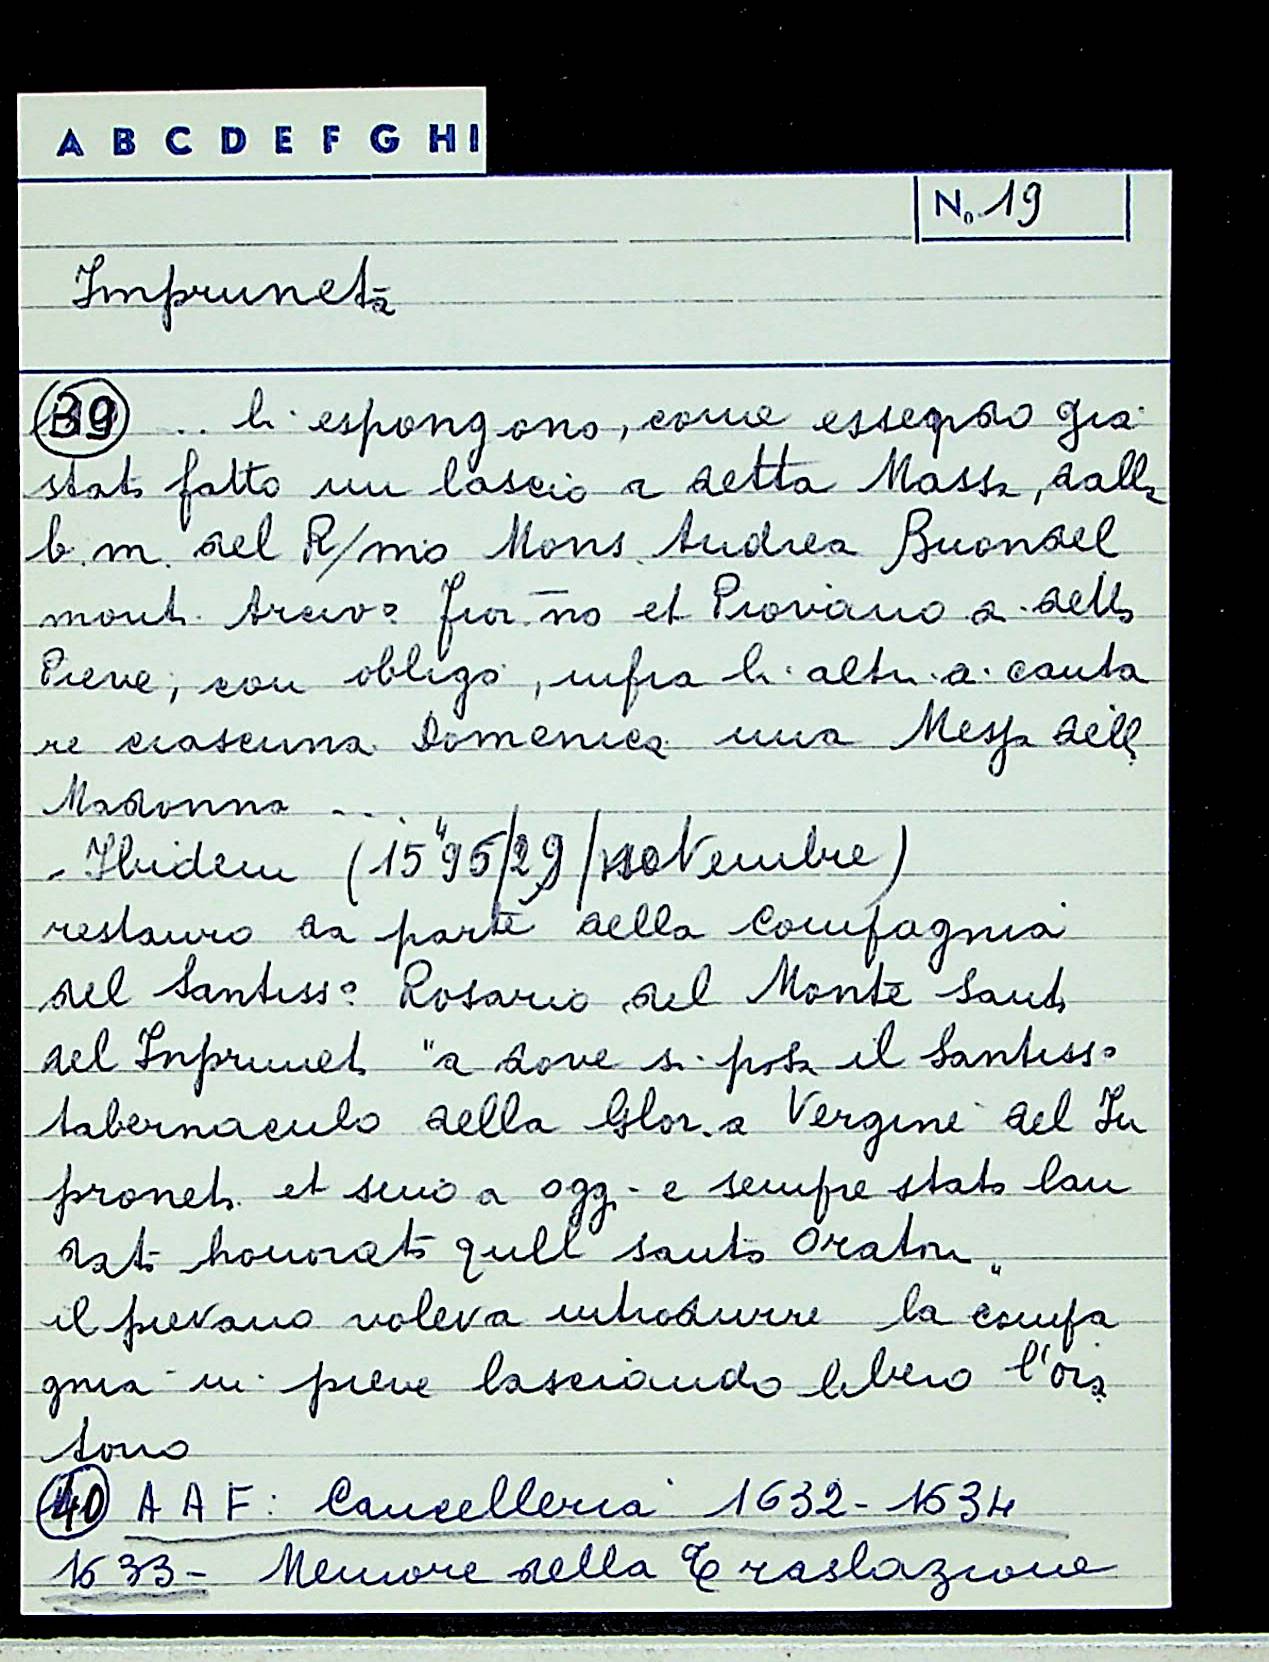 A B C D E F G H I
No. 19
Impruneta
39 .. li espongono, come essendo già
stato fatto un lascio a detta Massa, dalla
b. m. del R/mo Mons. Andrea Buondel
monti Arciv.o Fior.no et Piovano a detta
Pieve, con obligo, infra li altri a canta
re ciascuna Domenica una Messa della
Madonna ...
- Ibidem (1595/29/novembre)
restauro da parte della compagnia
del Santiss.o Rosario del Monte Santo
del Inpruneta "a dove si posa il Santiss.o
tabernaculo della Glor.a Vergine del In
proneta et sino a oggi e sempre stato lau
dato honorato quell santo oratorio"
il pievano voleva introdurre la compa
gnia in pieve lasciando libero l'ora
torio
40 A A F: Cancelleria 1632-1634
1633- Memore della Traslazione